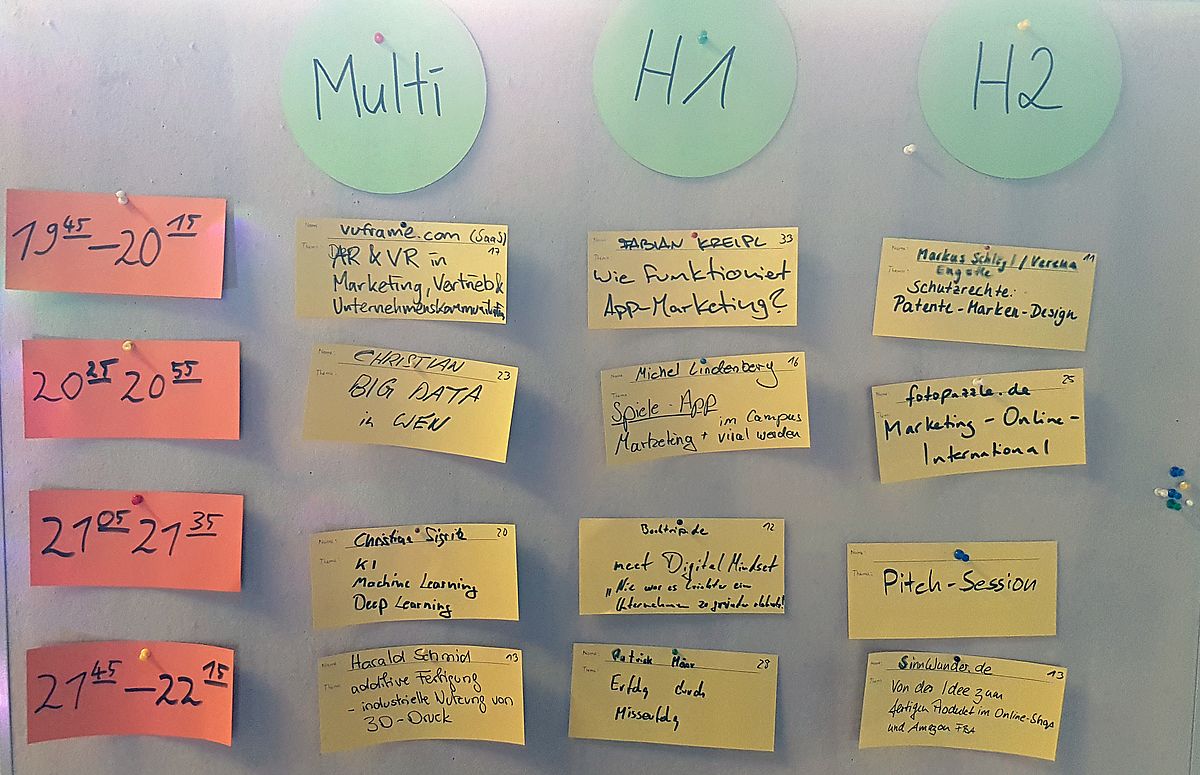 Multi
H1
H2
19 45 – 20 15
Name:
vuframe.com (SaaS)
17
Thema:
AR & VR in
Marketing, Vertrieb &
Unternehmenskommunikation
FABIAN KREIPL
33
Wie funktioniert
App-Marketing?
Name:
Markus Schlögl / Verena
11
Thema:
Schutzrechte:
Patente-Marken-Design
20 25 20 55
Name:
CHRISTIAN
23
Thema:
BIG DATA
in WEN
Name:
Michel Lindenberg
16
Thema:
Spiele-App
im Campus
Marketing + viral werden
fotopuzzle.de
25
Marketing - Online-
International
21 05 21 35
Name:
20
Thema:
KI
Machine Learning
Deep Learning
12
meet Digital Mindset
„Nie war es leichter ein
Unternehmen zu gründen
Name:
Thema:
Pitch-Session
21 45 – 22 15
Name:
Harald Schmid
13
Thema:
additive Fertigung
- industrielle Nutzung von
3D-Druck
Name:
Patrick
28
Thema:
Erfolg durch
Misserfolg
Name:
SinnWunder.de
13
Thema:
Von der Idee zum
fertigen Produkt im Online-Shop
und Amazon FBA